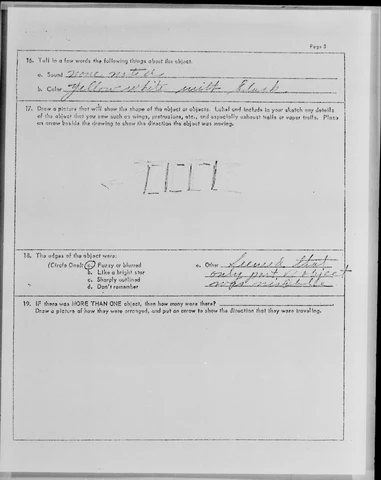 Page 3
16. Tell in a few words the following things about the object.
a. Sound none noted
b. Color yellow white with black
17. Draw a picture that will show the shape of the object or objects. Label and include in your sketch any details
of the object that you saw such as wings, protrusions, etc., and especially exhaust trails or vapor trails. Place
an arrow beside the drawing to show the direction the object was moving.
18. The edges of the object were:
(Circle One): a. Fuzzy or blurred
b. Like a bright star
c. Sharply outlined
d. Don't remember
e. Other Seemed that
only part of object
was visible
19. IF there was MORE THAN ONE object, then how many were there?
Draw a picture of how they were arranged, and put an arrow to show the direction that they were traveling.